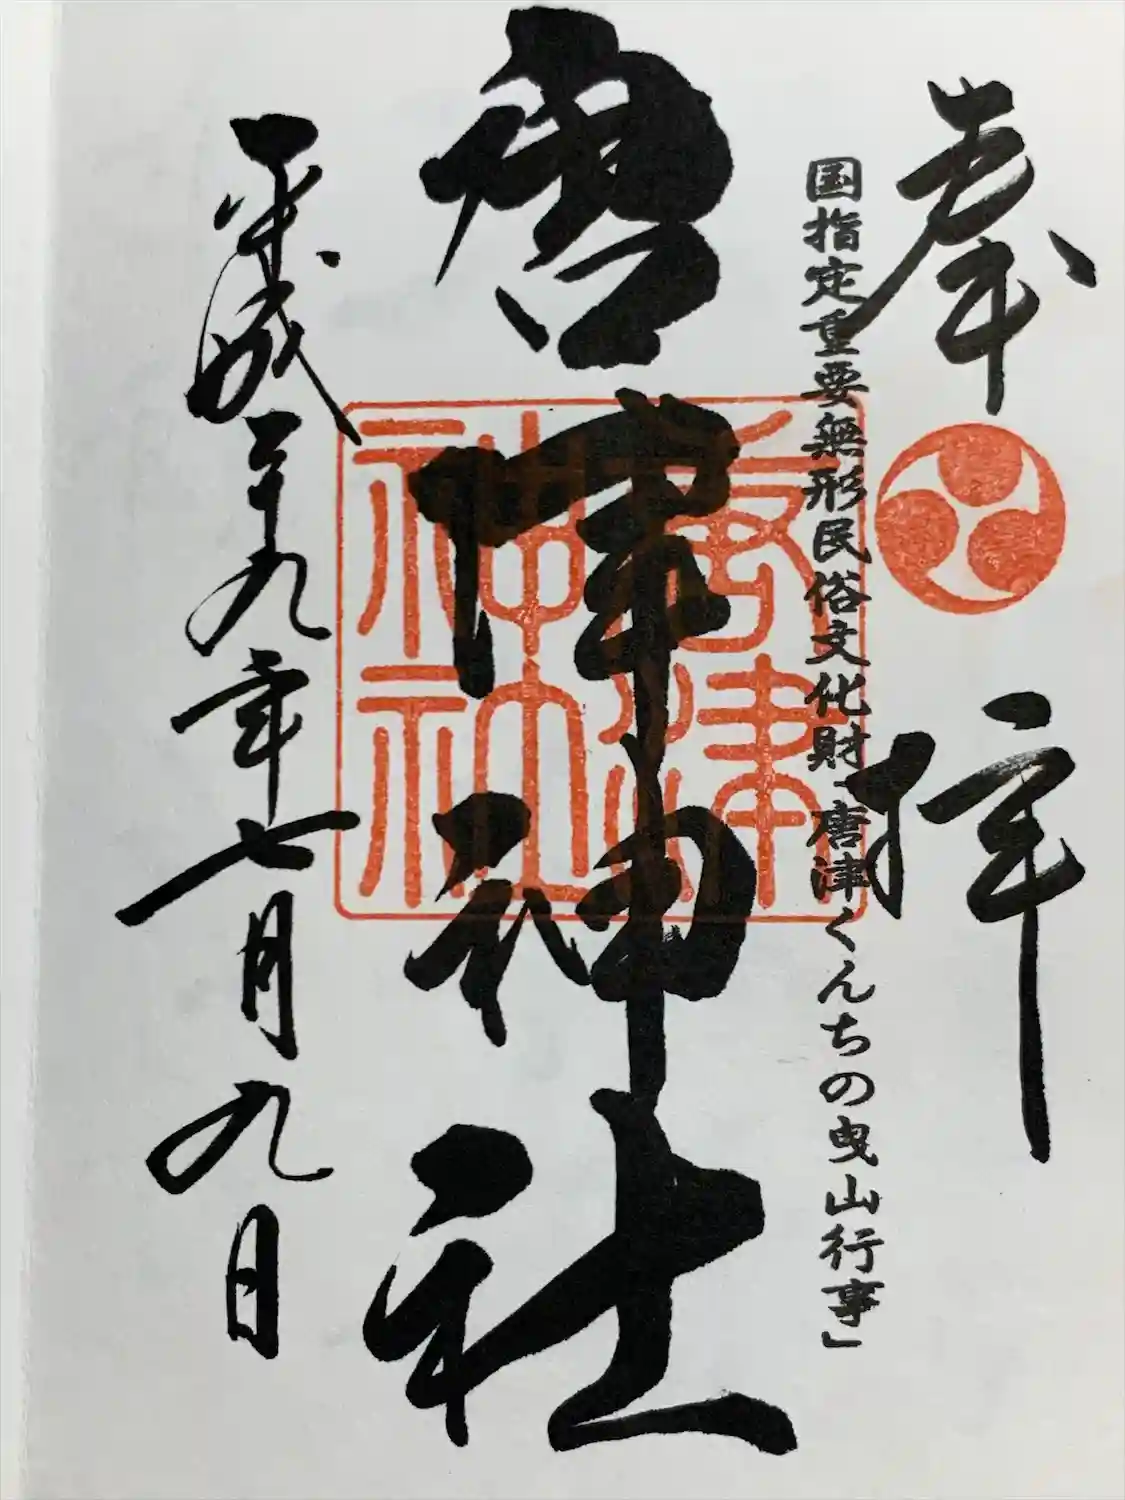 奉拝
国指定重要無形民俗文化財「唐津くんちの曳山行事」
唐津神社
唐津
神社
平成二十九年七月九日